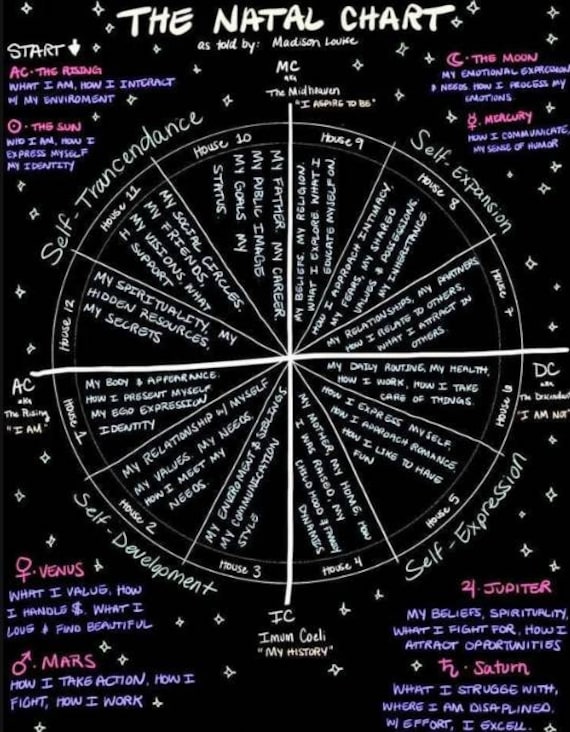 THE NATAL CHART
as told by: Madison Louise
START
AC · THE RISING
WHAT I AM, HOW I INTERACT
W/ MY ENVIROMENT
☉ · THE SUN
WHO I AM, HOW I
EXPRESS MYSELF
MY IDENTITY
MC
aka
The Midheaven
"I ASPIRE TO BE"
☾ · THE MOON
MY EMOTIONAL EXPRESSION
& NEEDS. HOW I PROCESS MY
EMOTIONS.
☿ · MERCURY
HOW I COMMUNICATE,
MY SENSE OF HUMOR
Self-Trancendance
Self-Expansion
House 10
MY FATHER. MY CAREER
MY PUBLIC IMAGE
MY GOALS MY
STATUS.
House 9
MY BELIEFS. MY RELIGION.
WHAT I EXPLORE. WHAT I
EDUCATE MYSELF ON.
House 11
MY SOCIAL CIRCLES.
MY FRIENDS,
MY VISIONS. WHAT
SUPPORT
House 8
HOW I APPROACH INTIMACY,
MY FEARS, MY SHARED
VALUES & POSSESSIONS,
MY INHERITANCE
House 12
MY SPIRITUALITY, MY
HIDDEN RESOURCES.
MY SECRETS
House 7
MY RELATIONSHIPS, MY PARTNERS
HOW I RELATE TO OTHERS.
WHAT I ATTRACT IN
OTHERS.
AC
aka
The Rising
"I AM"
DC
aka
The
"I AM NOT
House 1
MY BODY & APPEARANCE.
HOW I PRESENT MYSELF
MY EGO EXPRESSION
IDENTITY
House 6
MY DAILY ROUTINE, MY HEALTH,
HOW I WORK, HOW I TAKE
CARE OF THINGS.
House 2
MY RELATIONSHIP W/ MYSELF
MY VALUES. MY NEEDS.
HOW I MEET MY
NEEDS.
House 5
HOW I EXPRESS MYSELF
HOW I APPROACH ROMANCE,
HOW I LIKE TO HAVE
FUN
House 3
MY ENVIROMENT & SIBLINGS
MY COMMUNICATION
STYLE
House 4
MY MOTHER, MY HOME, HOW
I WAS RAISED, MY
CHILD HOOD & FAMILY
DYNAMICS
Self-Development
Self-Expression
♀ · VENUS
WHAT I VALUE, HOW
I HANDLE $. WHAT I
LOVE & FIND BEAUTIFUL
♂ · MARS
HOW I TAKE ACTION, HOW I
FIGHT, HOW I WORK
IC
Imum Coeli
"MY HISTORY"
♃ · JUPITER
MY BELIEFS, SPIRITUALITY,
WHAT I FIGHT FOR, HOW I
ATTRACT OPPORTUNITIES
♄ · Saturn
WHAT I STRUGGE WITH,
WHERE I AM DISAPLINED.
W/ EFFORT, I EXCELL.